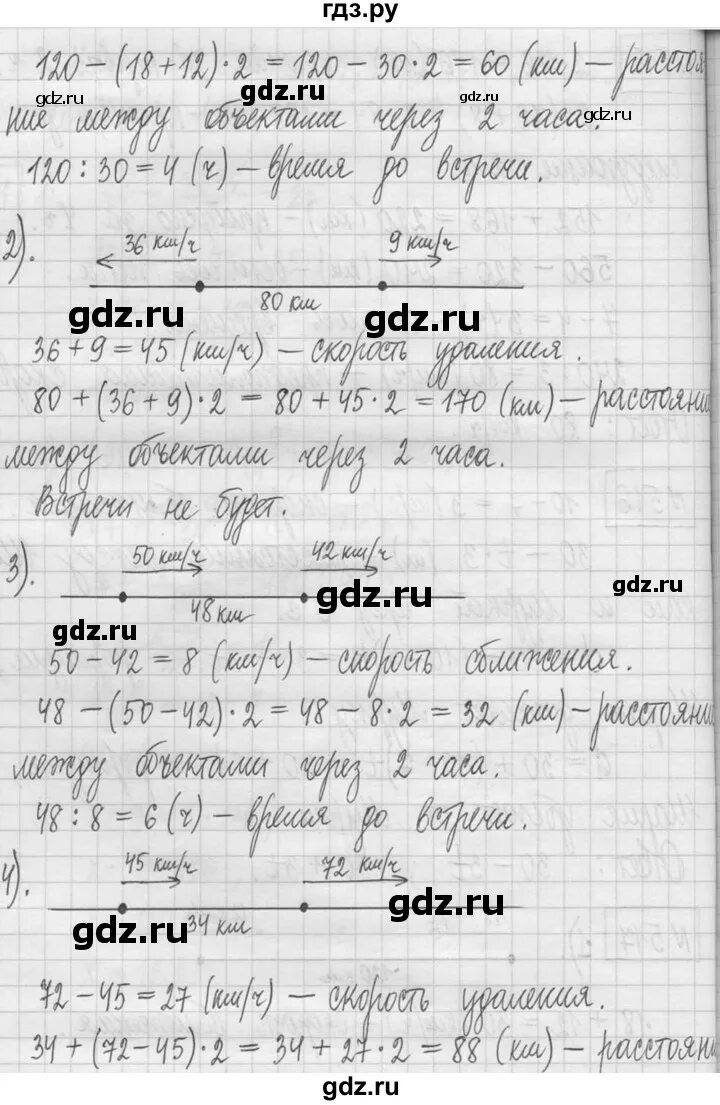 гдз.ру
120 – (18 + 12) · 2 = 120 – 30 · 2 = 60 (км) – расстоя
gdz.ru gdz.ru gdz.ru gdz.ru
ние между объектами через 2 часа.
120 : 30 = 4 (ч) – время до встречи.
2). 36 км/ч 9 км/ч
80 км
gdz.ru gdz.ru
36 + 9 = 45 (км/ч) – скорость удаления.
80 + (36 + 9) · 2 = 80 + 45 · 2 = 170 (км) – расстояни
между объектами через 2 часа.
Встречи не будет.
3). 50 км/ч 42 км/ч
gdz.ru gdz.ru
48 км
gdz.ru
50 – 42 = 8 (км/ч) – скорость сближения.
48 – (50 – 42) · 2 = 48 – 8 · 2 = 32 (км) – расстояни
между объектами через 2 часа.
48 : 8 = 6 (ч) – время до встречи.
4). 45 км/ч 72 км/ч
gdz.ru gdz.ru
34 км
72 – 45 = 27 (км/ч) – скорость удаления.
34 + (72 – 45) · 2 = 34 + 27 · 2 = 88 (км) – расстояни
gdz.ru